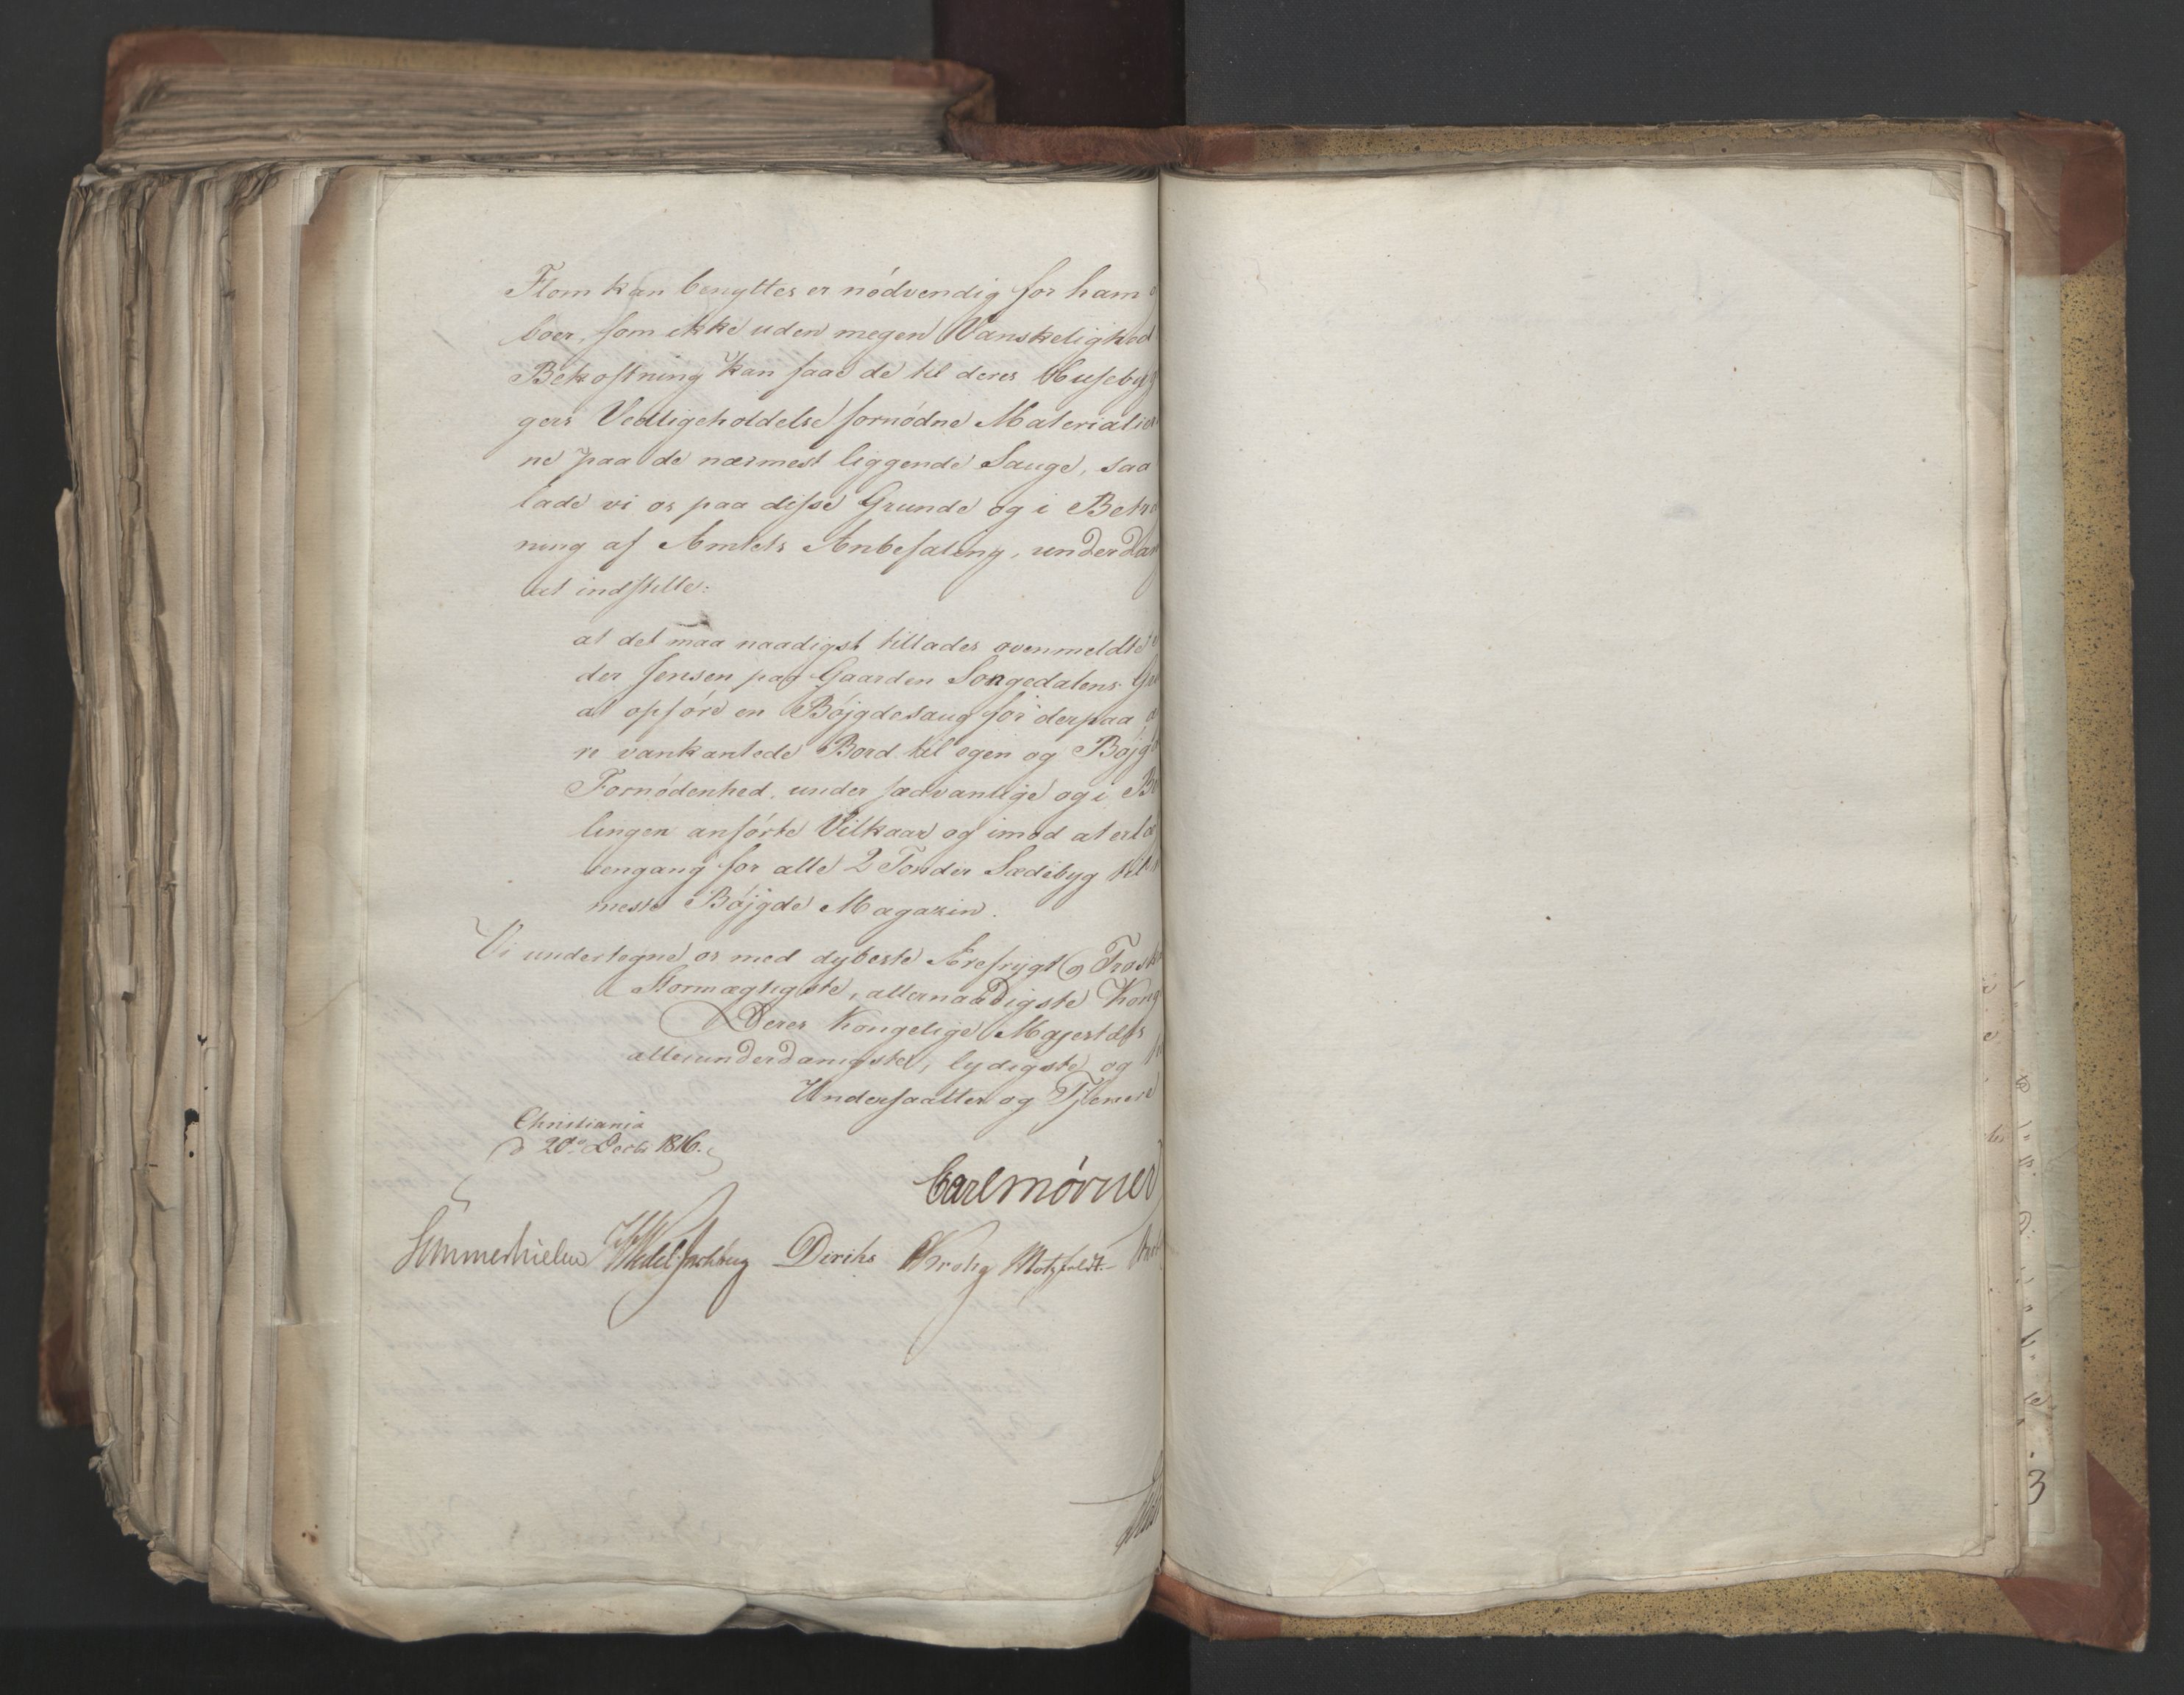 Flom kan benyttes er nödvendig for ham
boer, som ikke uden megen Vanskelighed
Bekostning kan faae de til deres Husebyg
gers Vedligeholdelse fornödne Materialier
ne paa de nærmest liggende Sauge, saa
lade vi os paa disse Grunde og i Betra
ning af Amtets Anbefaling, underdan
at indstille:
at det maa naadigst tillades ovenmeldte
der Jensen paa Gaarden Songedalens
at opföre en Böjgdesaug for derpaa
re vankantede Bord til egen og Böjg
Fornödenhed, under sædvanlige og i
lingen anförte Vilkaar og imod at erlæ
eengang for alle 2 Tönder Sædebyg til
meste Böjgde Magazin.
Vi undertegne os med dybeste Ærefrygt og Trosk
Stormægtigste, allernaadigste Kong
Deres Kongelige Majestæts
allerunderdanigste, lydigste og
Undersaatter og Tjenere
Christiania
d 20de Decbr 1816.
Carl Mörner
Sommerhielm Wedel Jarlsberg Diriks Krohg Motzfeldt
3